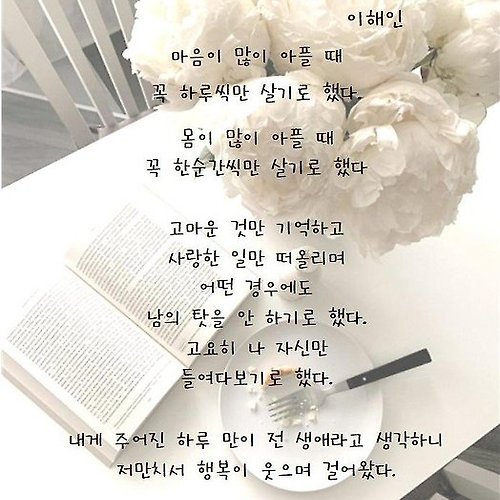 이해인
마음이 많이 아플 때
꼭 하루씩만 살기로 했다.
몸이 많이 아플 때
꼭 한순간씩만 살기로 했다
고마운 것만 기억하고
사랑한 일만 떠올리며
어떤 경우에도
남의 탓을 안 하기로 했다.
고요히 나 자신만
들여다보기로 했다.
내게 주어진 하루 만이 전 생애라고 생각하니
저만치서 행복이 웃으며 걸어왔다.